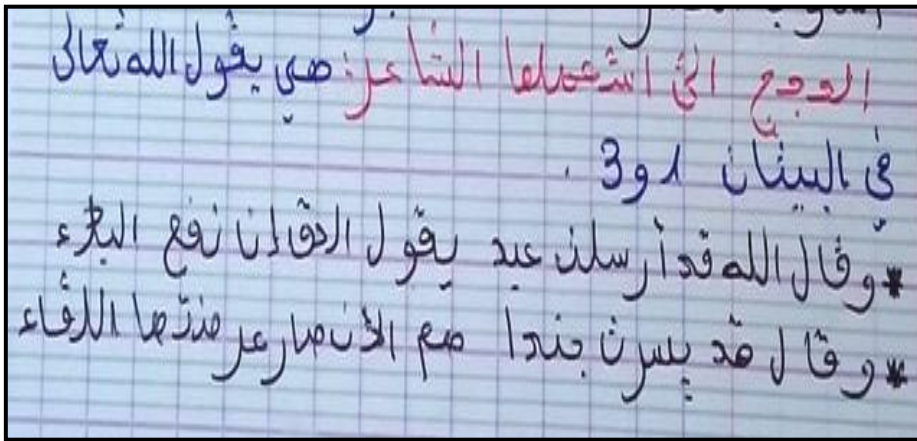 الحجج التي استعملها الشاعر: هي يقول الله تعالى
في البيتان 1 و 3 .
* وقال الله قد أرسلت عبد يقول الحق إن نفع البلاء
* وقال قد يسرت جندا هم الأنصار عرضتها اللقاء